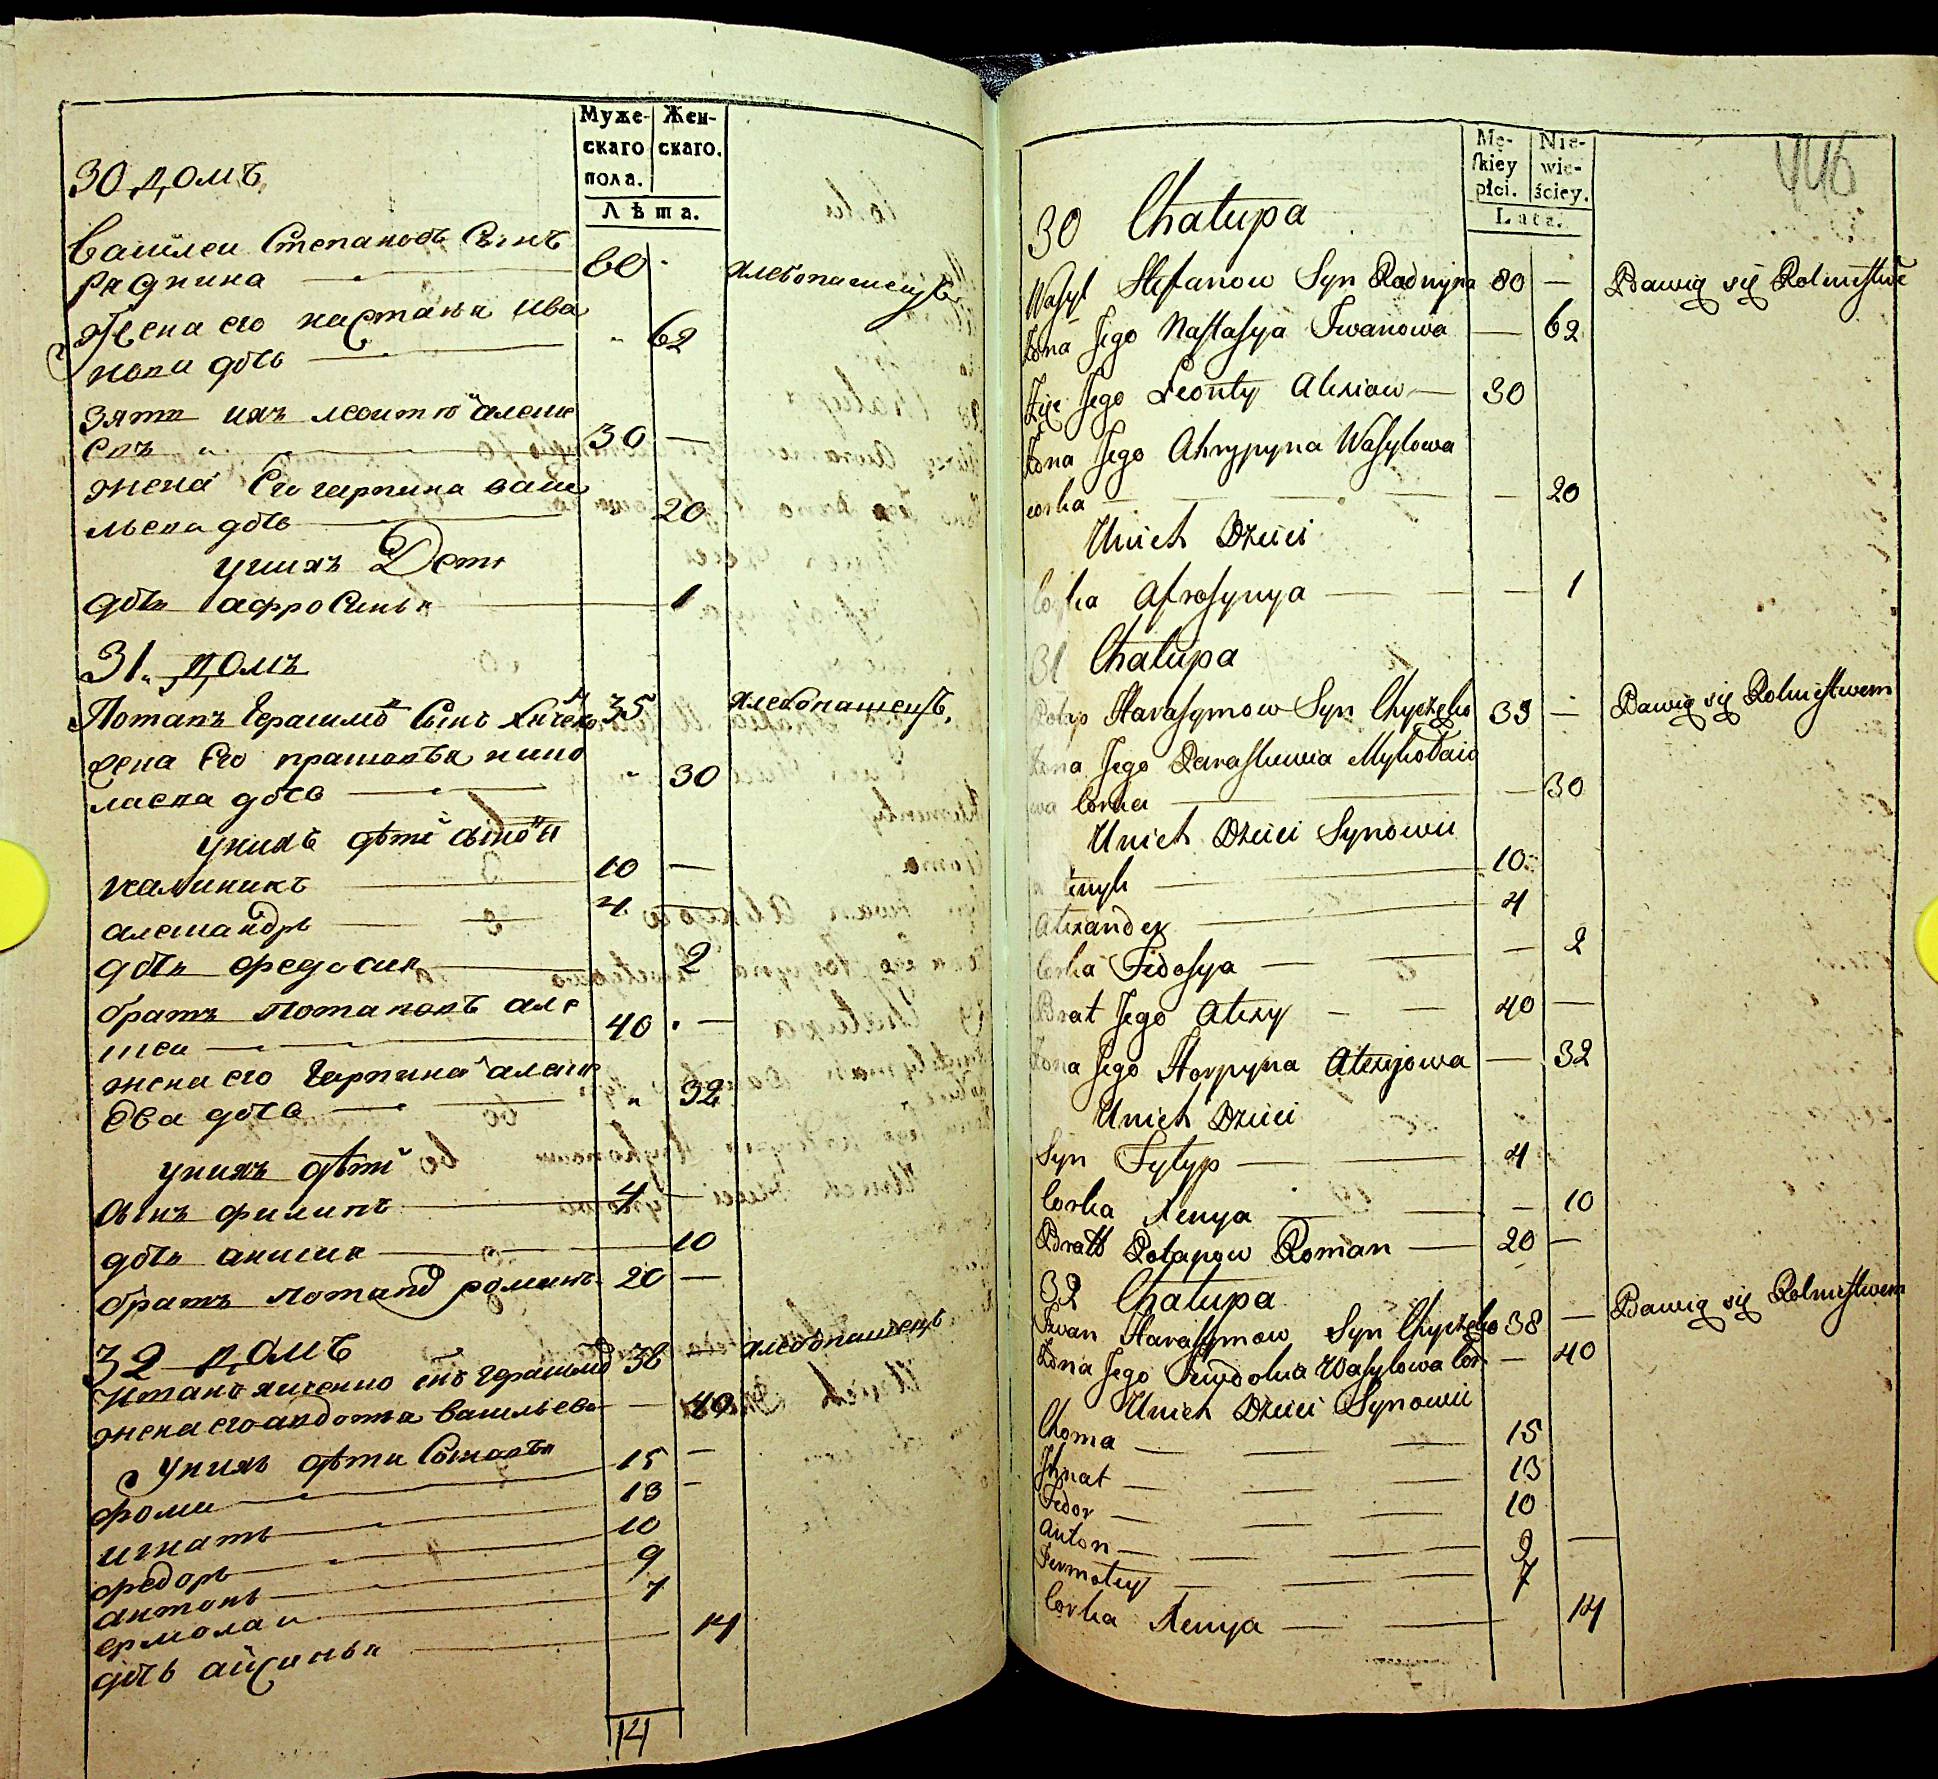 Муже-
скаго
пола.
Жен-
скаго.
Лѣта.
30 домъ
Василеи Степановъ Сынъ
Раднина 60
хлебопашецъ
Жена его настасья ива
нова дочь 62
Зять ихъ леонтій алексе
евъ 30 —
жена Его гарпина васи
льева дочь 20
у нихъ Дети
дочь афросинья 1
31. домъ
Потапъ Герасимо Сынъ 35
хлебопашецъ.
жена Его прасковья нико
лаева дочь 30
у нихъ дѣти
калиникъ 10 —
александръ 4 —
дочь федосия 2
братъ Потаповъ але
ксеи 40 —
жена его Гарпина алексе
ева дочь 32
у нихъ дѣти
сынъ филипъ 4 —
дочь аксиня 10
братъ потапо романъ 20 —
32 домъ
38 —
хлебопашецъ
жена его авдотья васильева — 40
у нихъ дѣти Сыновья
фома 15 —
игнатъ 13 —
федоръ 10
антонъ 9
ермолаи 7
дочь аксинья 14
14
Mę-
skiey
płci.
Nie-
wie-
ściey.
Lata.
446
30 Chałupa
Wasyl Stefanow Syn Radnyna 80 — Bawią się Rolnictwe
Żona Jego Nastasya Iwanowa — 62
Zięc Jego Leonty Alexiow — 30
Żona Jego Ahrypyna Wasylowa
corka — — 20
Unich Dzieci
Corka Afrosynya — — 1
31 Chałupa
Potap Harasymow Syn 35 — Bawią się Rolnictwem
Żona Jego Paraskewia Mykołaio
wa Corka — 30
Unich Dzieci Synowie
10
Alexander 4
Corka Fedosya — — 2
Brat Jego Alexy — — 40 —
Żona Jego Horpyna Alexijowa — 32
Unich Dzieci
Syn Fylyp — 4
Corka Xenya — — 10
Bratt Potapow Roman — 20 —
32 Chałupa
Iwan Harasymow Syn 38 — Bawią się Rolnictwem
Żona Jego Wasylowa Cor — 40
Unich Dzieci Synowie
Choma — — 15
Ihnat — — 13
Fedor — — 10
Anton — — 9 —
— — 7
Corka Xenya — — 14